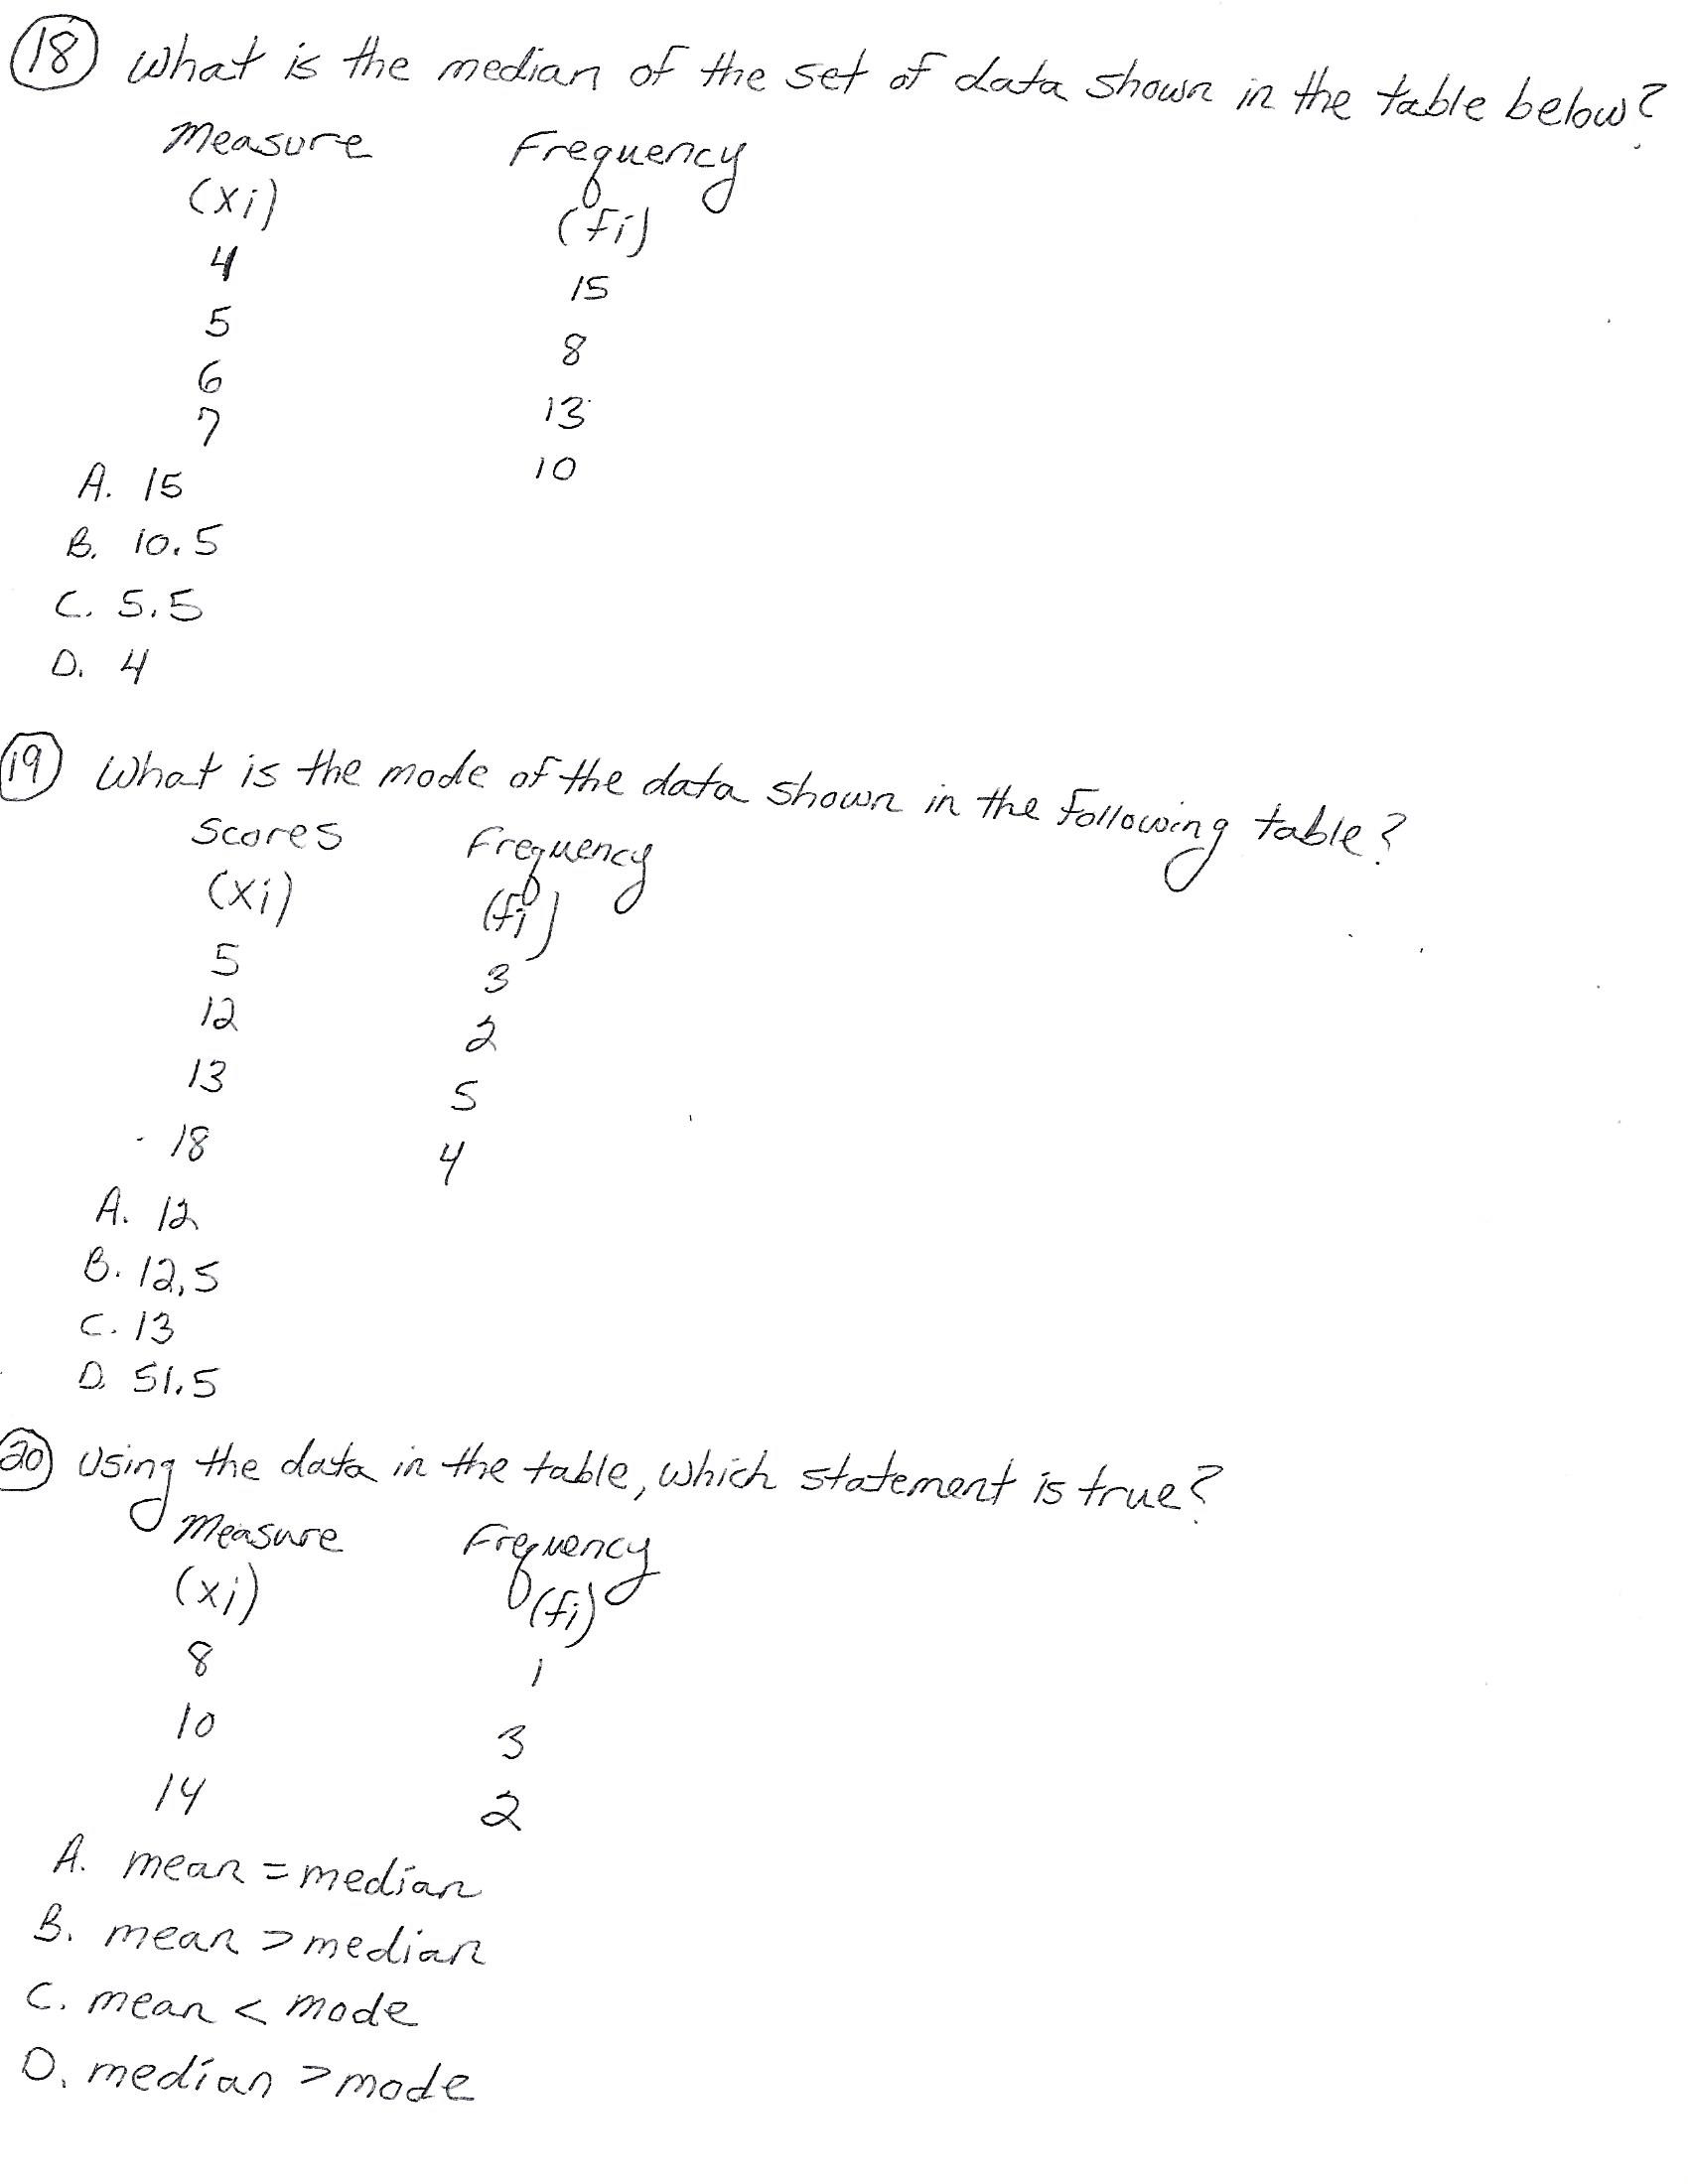 18 What is the median of the set of data shown in the table below?
Measure Frequency
(xi) (fi)
4 15
5 8
6 13
7 10
A. 15
B. 10.5
C. 5.5
D. 4
19 What is the mode of the data shown in the following table?
Scores Frequency
(xi) (fi)
5 3
12 2
13 5
18 4
A. 12
B. 12.5
C. 13
D. 51.5
20 Using the data in the table, which statement is true?
Measure Frequency
(xi) (fi)
8 1
10 3
14 2
A. mean = median
B. mean > median
C. mean < mode
D. median > mode